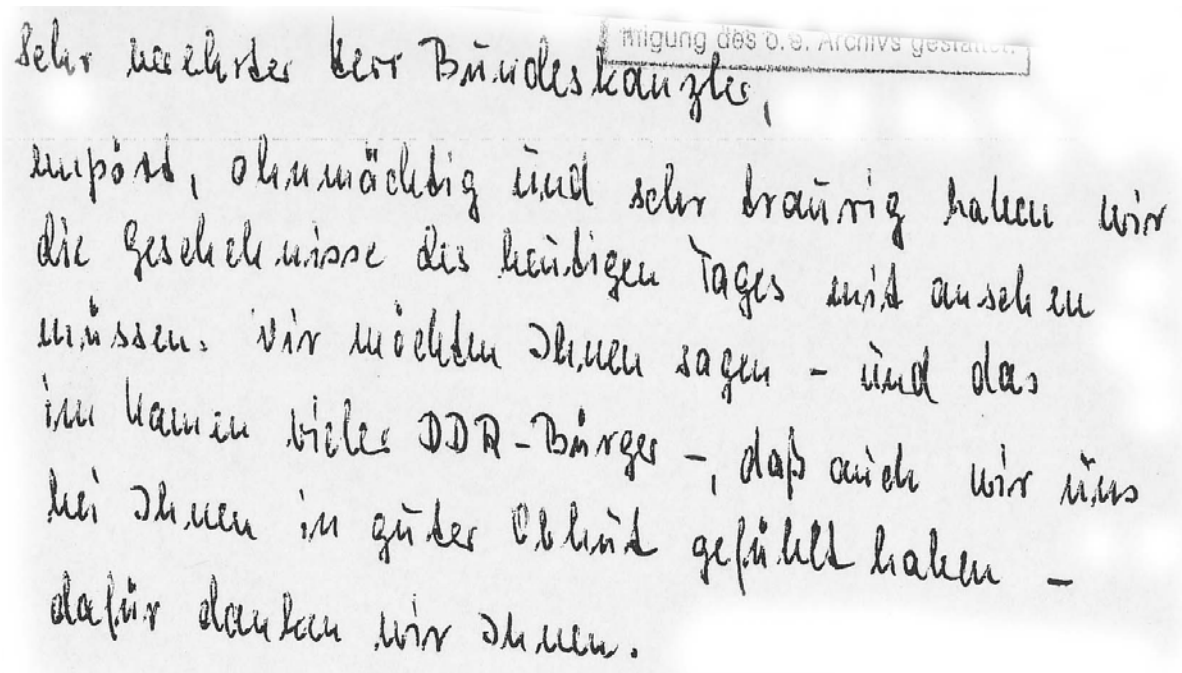 migung des o. g. Archivs gestattet.
Sehr verehrter Herr Bundeskanzler,
empört, ohnmächtig und sehr traurig haben wir
die Geschehnisse des heutigen Tages mit ansehen
müssen. Wir möchten Ihnen sagen - und das
im Namen vieler DDR-Bürger -, daß auch wir uns
bei Ihnen in guter Obhut gefühlt haben -
dafür danken wir Ihnen.